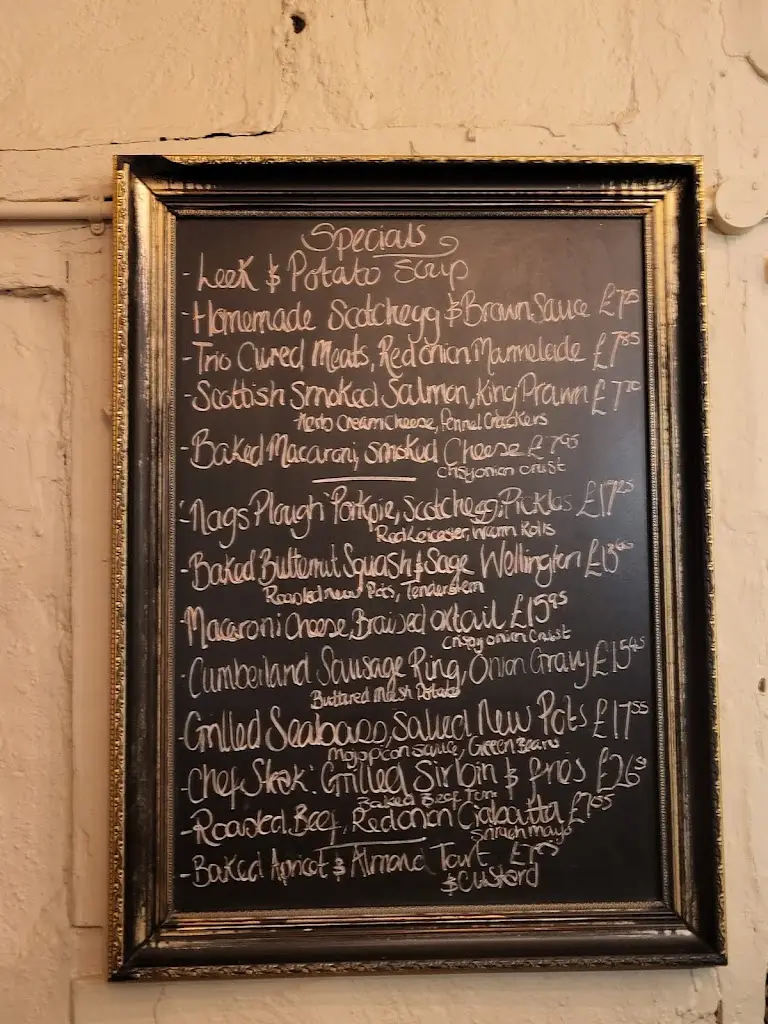 Specials
- Leek & Potato Soup
- Homemade Scotchegg & Brown Sauce £7.25
- Trio Cured Meats, Red onion Marmelade £7.85
- Scottish Smoked Salmon, King Prawn £7.20
Herb Cream Cheese, Fennel Crackers
- Baked Macaroni, smoked Cheese £7.95
Crispy onion crust
- Nags Plough Porkpie, Scotchegg, Pickles £17.25
Red Leicester, Warm Rolls
- Baked Butternut Squash & Sage Wellington £13
Roasted new Pots, Tenderstem
- Macaroni Cheese, Braised oxtail £15.95
Crispy onion Crust
- Cumberland Sausage Ring, Onion Gravy £15
Buttered Mash Potato
- Grilled Seabass, Salted New Pots £17.55
Mojo picon sauce, Green Beans
- Chef Steak: Grilled Sirloin & fries £26
Baked Beef Tom
- Roasted Beef, Red onion Ciabatta
Srirach mayo
- Baked Apricot & Almond Tart
& Custard